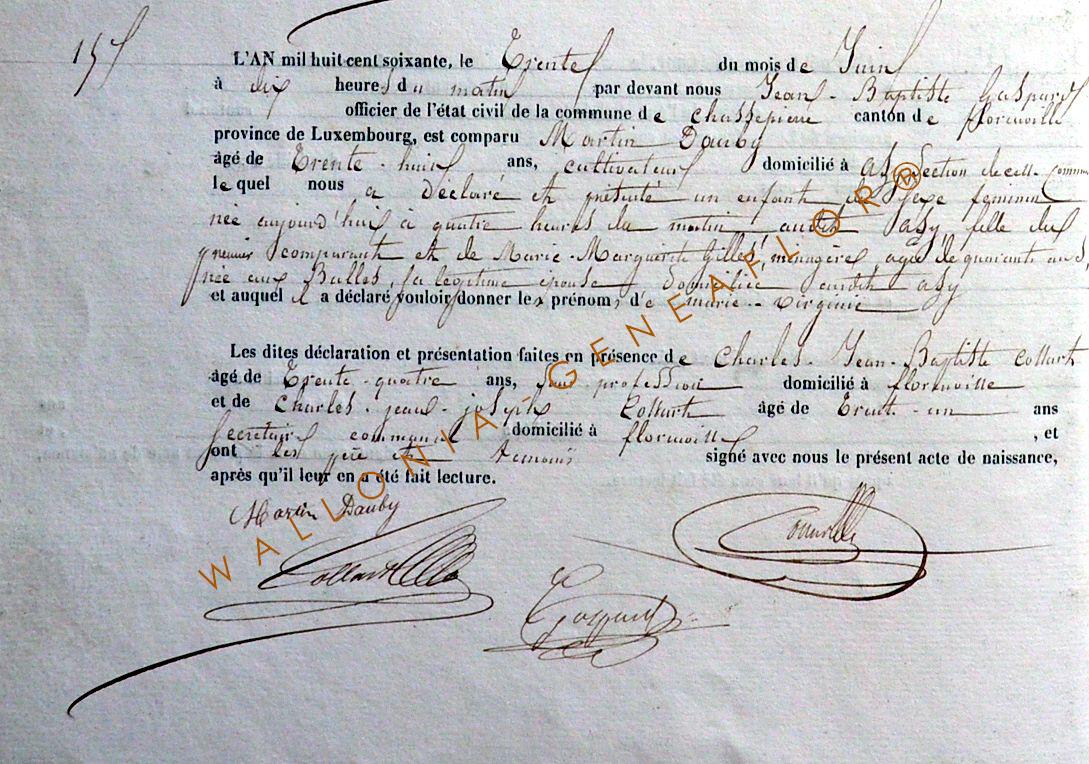 157
L'AN mil huit cent soixante, le Trente du mois de Juin
à dix heures du matin par devant nous Jean-Baptiste Gaspard
officier de l'état civil de la commune de Chassepierre canton de florenville
province de Luxembourg, est comparu Martin Dauby
âgé de Trente-huit ans, cultivateur domicilié à asy Section de cette Commune
le quel nous a déclaré et présenté un enfant de Sexe feminin
née aujourd'hui à quatre heures du matin audit asy fille du
premier comparant et de Marie-Marguerite Gilles, ménagère agée de quarante ans,
née aux Bulles, sa légitime épouse, domiciliée audit asy
et auquel il a déclaré vouloir donner les prénoms de marie-virginie
Les dites déclaration et présentation faites en présence de Charles-Jean-Baptiste Collart
âgé de Trente-quatre ans, sans profession domicilié à florenville
et de Charles-jean-joseph Collart âgé de Trente-un ans
Secretaire communal domicilié à florenville, et
ont les père et temoins signé avec nous le présent acte de naissance,
après qu'il leur en a été fait lecture.
Martin Dauby
Collart
Gaspard
WALLONIA GENEAFLOR ®